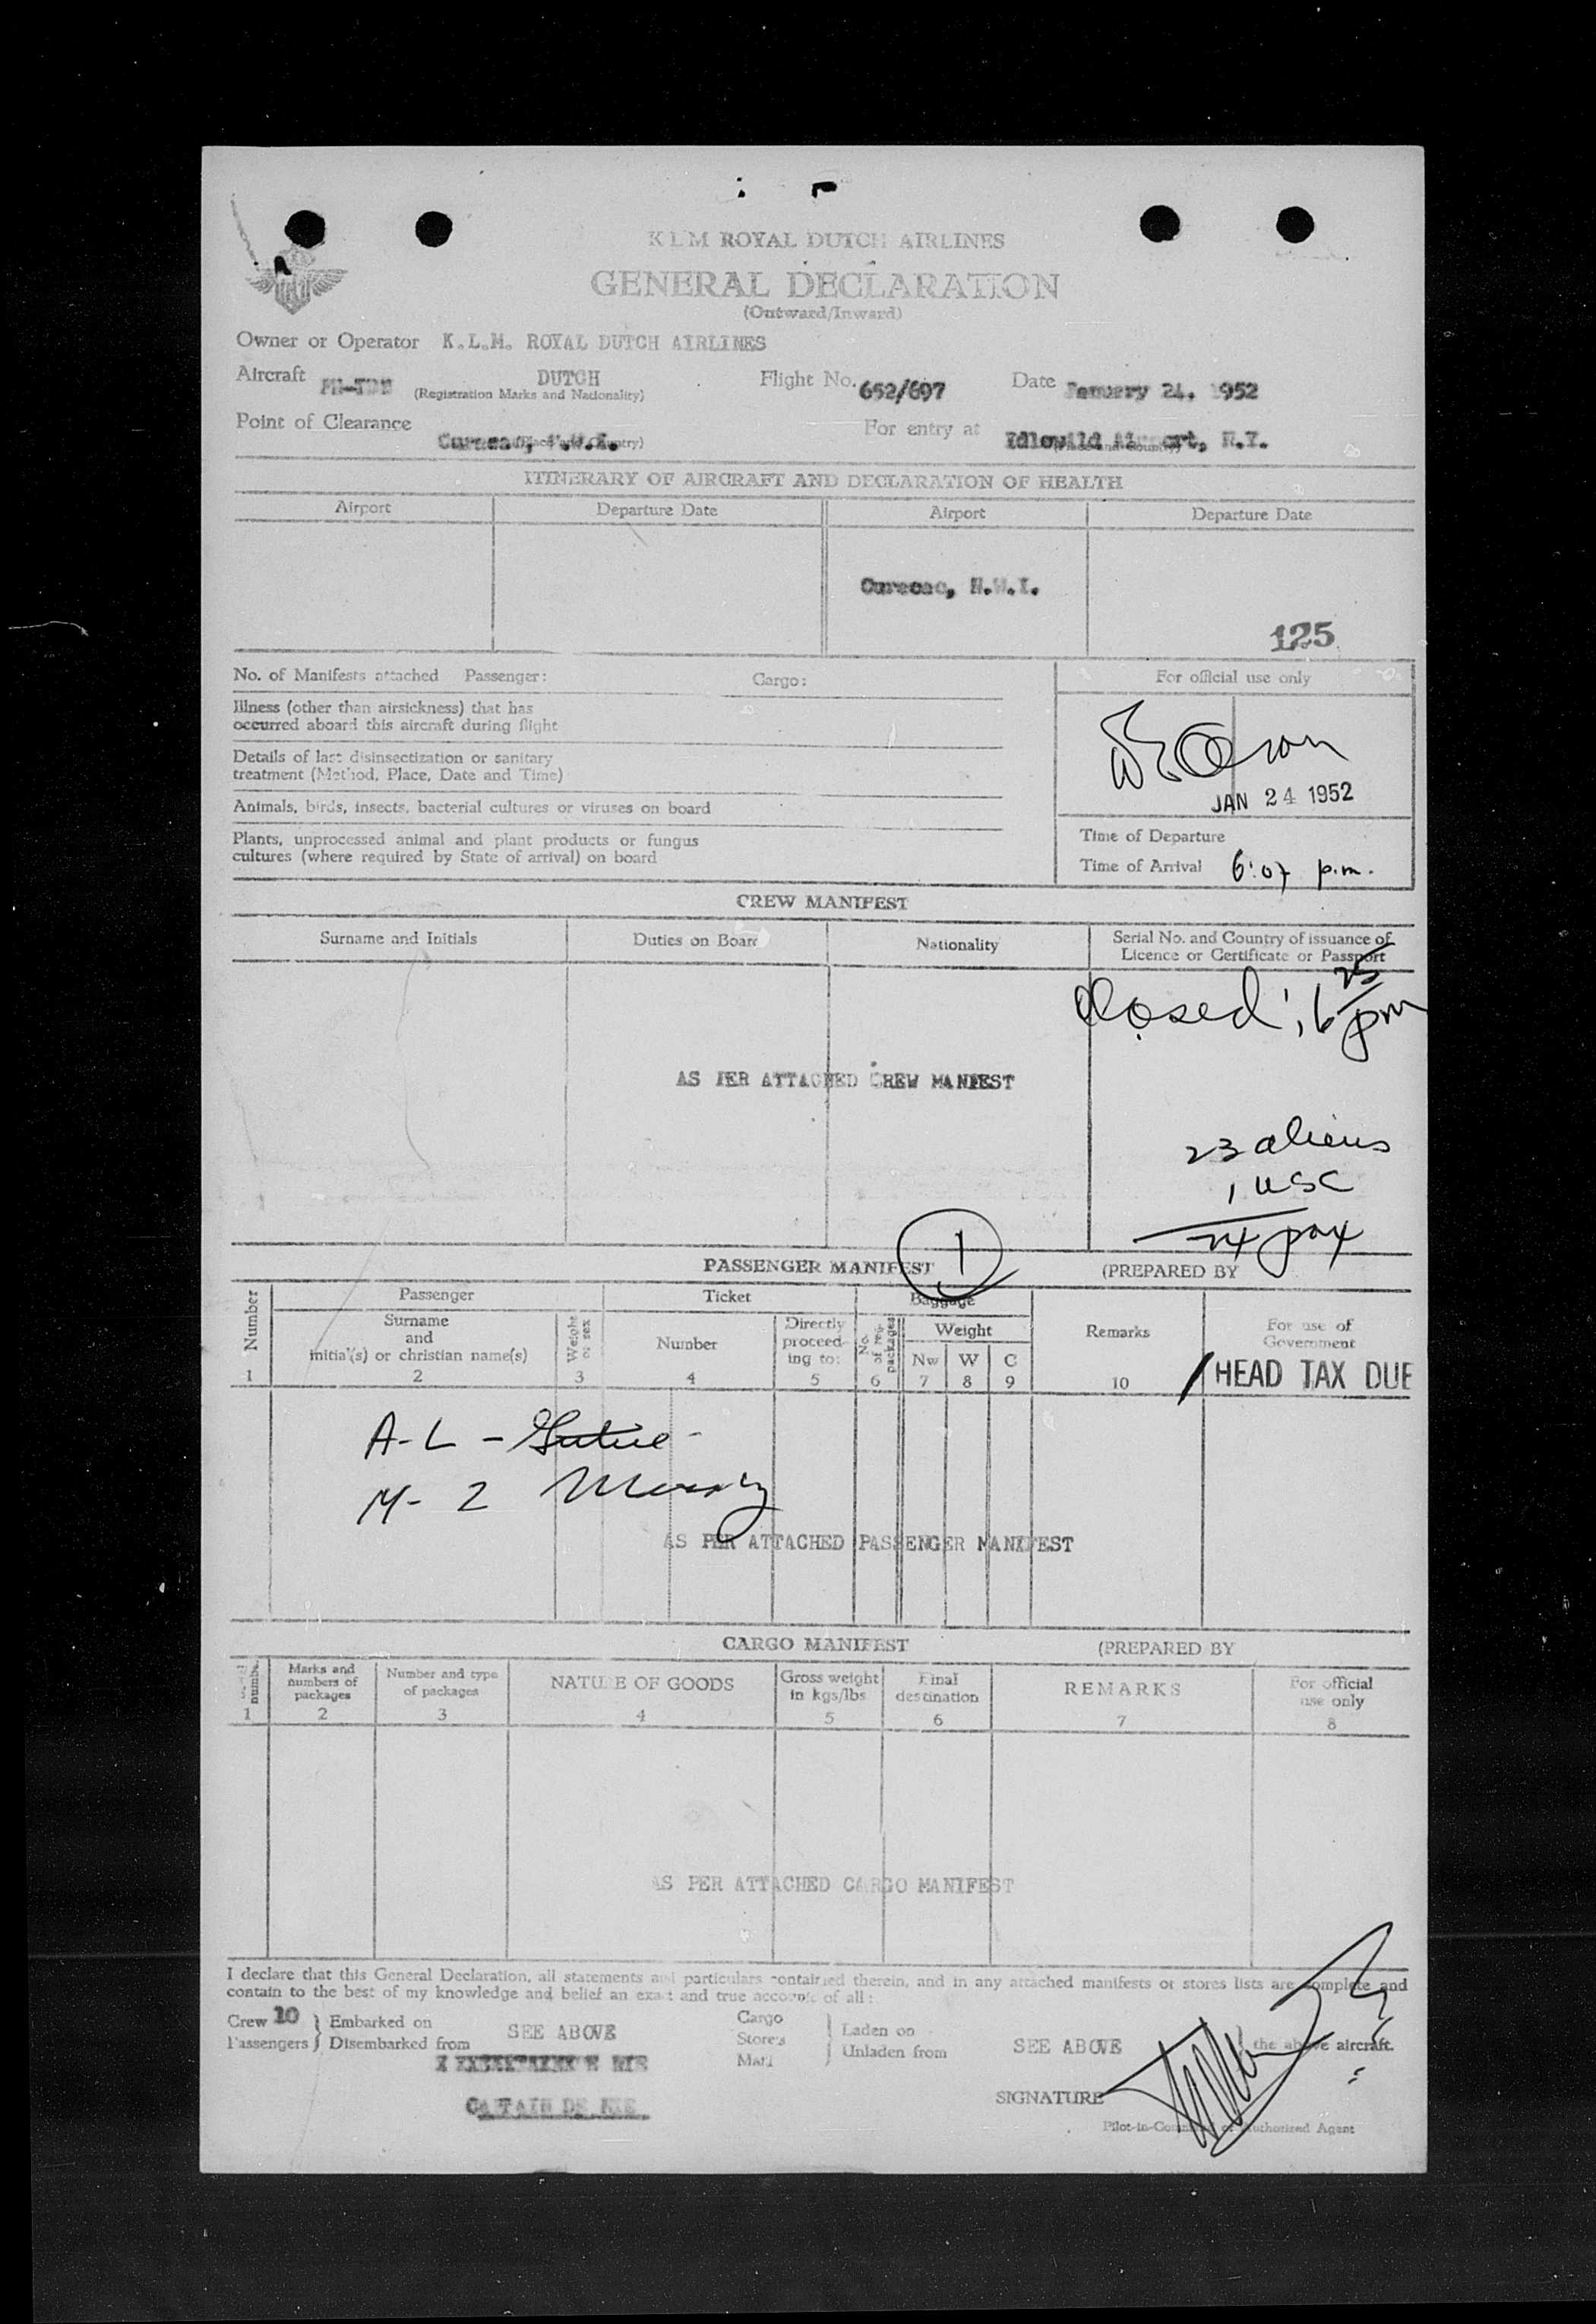 KLM ROYAL DUTCH AIRLINES
GENERAL DECLARATION
(Outward/Inward)
Owner or Operator K.L.M. ROYAL DUTCH AIRLINES
Aircraft DUTCH Flight No. 652/697 Date January 24, 1952
(Registration Marks and Nationality)
Point of Clearance Curacao, N.W.I. For entry at Idlewild Airport, N.Y.
ITINERARY OF AIRCRAFT AND DECLARATION OF HEALTH
Airport Departure Date Airport Departure Date
Curacao, N.W.I.
125
No. of Manifests attached Passenger: Cargo: For official use only
Illness (other than airsickness) that has
occurred aboard this aircraft during flight
Details of last disinsectization or sanitary
treatment (Method, Place, Date and Time)
JAN 24 1952
Animals, birds, insects, bacterial cultures or viruses on board
Plants, unprocessed animal and plant products or fungus
cultures (where required by State of arrival) on board
Time of Departure
Time of Arrival 6:07 p.m.
CREW MANIFEST
Surname and Initials Duties on Board Nationality Serial No. and Country of issuance of
Licence or Certificate or Passport
Closed; 6 25 pm
AS PER ATTACHED CREW MANIFEST
23 aliens
1 USC
24 pax
PASSENGER MANIFEST 1 (PREPARED BY
Number Passenger Ticket Baggage
Surname
and
initial(s) or christian name(s)
Weight or sex
Number
Directly
proceed-
ing to:
No. of reg. packages
Weight
Nw W C
Remarks
For use of
Government
1 2 3 4 5 6 7 8 9 10
HEAD TAX DUE
A-L -
M-Z
AS PER ATTACHED PASSENGER MANIFEST
CARGO MANIFEST (PREPARED BY
number
Marks and
numbers of
packages
Number and type
of packages
NATURE OF GOODS
Gross weight
in kgs/lbs
Final
destination
REMARKS
For official
use only
1 2 3 4 5 6 7 8
AS PER ATTACHED CARGO MANIFEST
I declare that this General Declaration, all statements and particulars contained therein, and in any attached manifests or stores lists are complete and
contain to the best of my knowledge and belief an exact and true account of all:
Crew 10 } Embarked on
Passengers } Disembarked from
SEE ABOVE
Cargo
Stores
Mail
Laden on
Unladen from
SEE ABOVE
the above aircraft.
CAPTAIN DE NIE
SIGNATURE
Pilot-in-Command or Authorized Agent